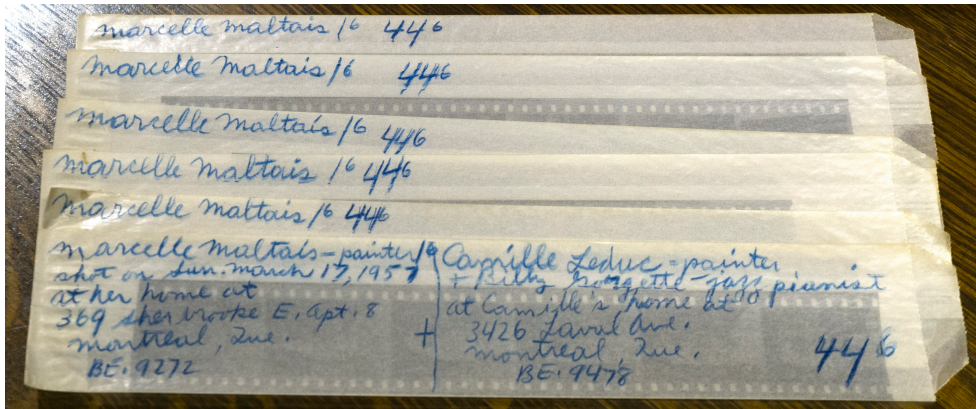 marcelle maltais /6 446
marcelle maltais /6 446
marcelle maltais /6 446
marcelle maltais /6 446
marcelle maltais /6 446
marcelle maltais - painter /6
shot on Sun. march 17, 1957
at her home at
369 sherbrooke E. Apt. 8
montreal, Que.
BE. 9272
+
Camille Leduc - painter
+ Billy - jazz pianist
at Camille's home at
3426 Laval Ave.
montreal, Que.
BE. 9478
446